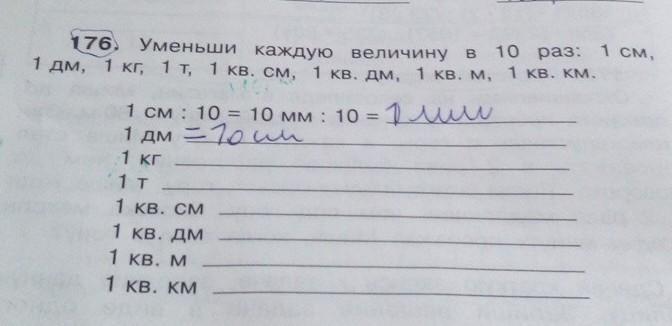 176. Уменьши каждую величину в 10 раз: 1 см,
1 дм, 1 кг, 1 т, 1 кв. см, 1 кв. дм, 1 кв. м, 1 кв. км.
1 см : 10 = 10 мм : 10 = 1 мм
1 дм = 10 см
1 кг
1 т
1 кв. см
1 кв. дм
1 кв. м
1 кв. км